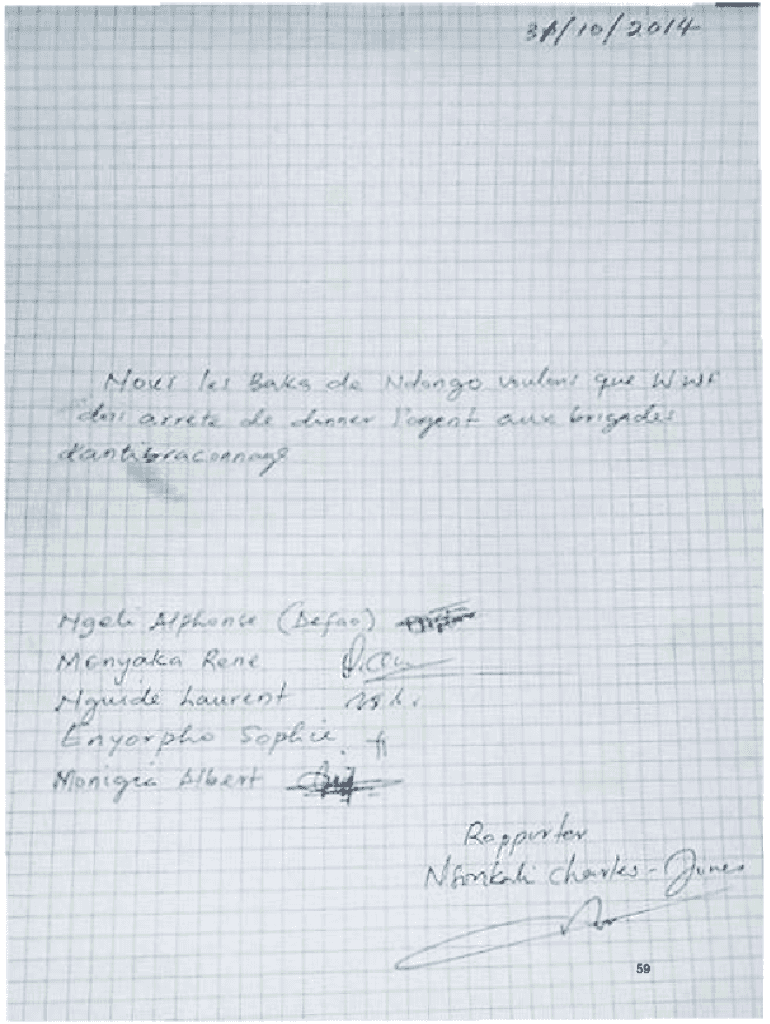 31/10/2014
Nous les Baka de Ndongo voulons que WWF
dois arrete de donner l'argent aux brigades
d'antibraconnage
Ngeli Alphonse (Defao)
Menyaka Rene
Nguide Laurent
Enyorpho Sophie
Albert
Rapportor
Nsonkali Charles-Jones
59